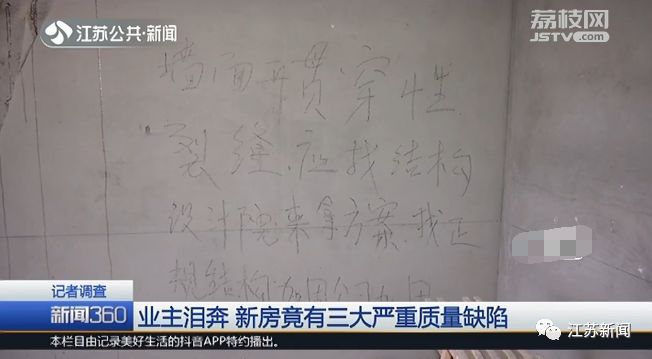 江苏公共·新闻
荔枝网
JSTV.com
墙面有贯穿性
裂缝,应找结构
设计院来拿方案,找正
规结构加固公司
记者调查
新闻360
业主泪奔 新房竟有三大严重质量缺陷
本栏目由记录美好生活的抖音APP特约播出。
江苏新闻